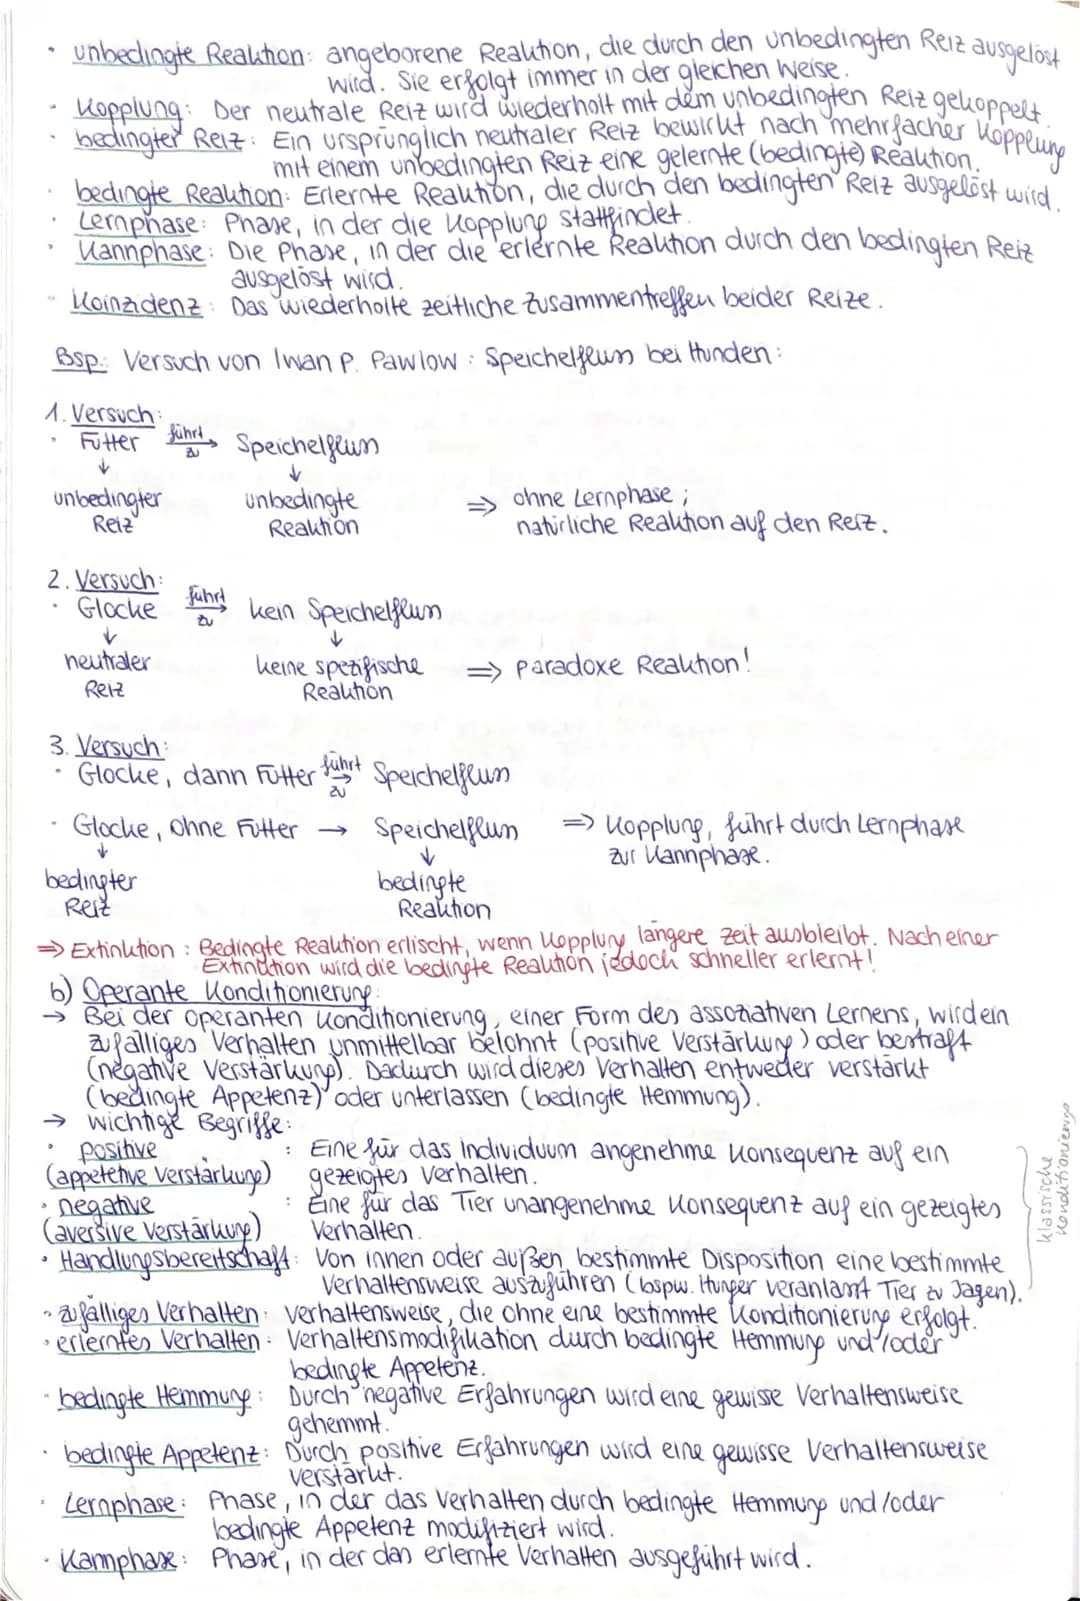 · unbedingte Reaktion: angeborene Reaktion, die durch den unbedingten Reiz ausgelöst
wird. Sie erfolgt immer in der gleichen Weise.
- Kopplung: Der neutrale Reiz wird wiederholt mit dem unbedingten Reiz gekoppelt.
· bedingter Reiz: Ein ursprünglich neutraler Reiz bewirkt nach mehrfacher Kopplung
mit einem unbedingten Reiz eine gelernte (bedingte) Reaktion.
· bedingte Reaktion: Erlernte Reaktion, die durch den bedingten Reiz ausgelöst wird.
· Lernphase: Phase, in der die Kopplung stattfindet.
· Kannphase: Die Phase, in der die erlernte Reaktion durch den bedingten Reiz
ausgelöst wird.
- Koinzidenz: Das wiederholte zeitliche Zusammentreffen beider Reize.
Bsp.: Versuch von Iwan P. Pawlow: Speichelfluss bei Hunden:
1. Versuch:
· Futter führt zu → Speichelfluss
↓ ↓
unbedingter unbedingte => ohne Lernphase;
Reiz Reaktion natürliche Reaktion auf den Reiz.
2. Versuch:
· Glocke führt zu → kein Speichelfluss
↓ ↓
neutraler keine spezifische => paradoxe Reaktion!
Reiz Reaktion
3. Versuch:
· Glocke, dann Futter führt zu → Speichelfluss
· Glocke, ohne Futter → Speichelfluss => Kopplung, führt durch Lernphase
↓ ↓ zur Kannphase.
bedingter bedingte
Reiz Reaktion
=> Extinktion: Bedingte Reaktion erlischt, wenn Kopplung längere Zeit ausbleibt. Nach einer
Extinktion wird die bedingte Reaktion jedoch schneller erlernt!
b) Operante Konditionierung:
→ Bei der operanten Konditionierung, einer Form des assoziativen Lernens, wird ein
zufälliges Verhalten unmittelbar belohnt (positive Verstärkung) oder bestraft
(negative Verstärkung). Dadurch wird dieses Verhalten entweder verstärkt
(bedingte Appetenz) oder unterlassen (bedingte Hemmung).
→ wichtige Begriffe:
· positive : Eine für das Individuum angenehme Konsequenz auf ein
(appetetive Verstärkung) gezeigtes Verhalten.
· negative : Eine für das Tier unangenehme Konsequenz auf ein gezeigtes
(aversive Verstärkung) Verhalten.
· Handlungsbereitschaft: Von innen oder außen bestimmte Disposition eine bestimmte
Verhaltensweise auszuführen (bspw. Hunger veranlasst Tier zu Jagen).
klassische
Konditionierung
· zufälliges Verhalten: Verhaltensweise, die ohne eine bestimmte Konditionierung erfolgt.
· erlerntes Verhalten: Verhaltensmodifikation durch bedingte Hemmung und/oder
bedingte Appetenz.
- bedingte Hemmung: Durch negative Erfahrungen wird eine gewisse Verhaltensweise
gehemmt.
· bedingte Appetenz: Durch positive Erfahrungen wird eine gewisse Verhaltensweise
verstärkt.
· Lernphase: Phase, in der das Verhalten durch bedingte Hemmung und/oder
bedingte Appetenz modifiziert wird.
· Kannphase: Phase, in der das erlernte Verhalten ausgeführt wird.